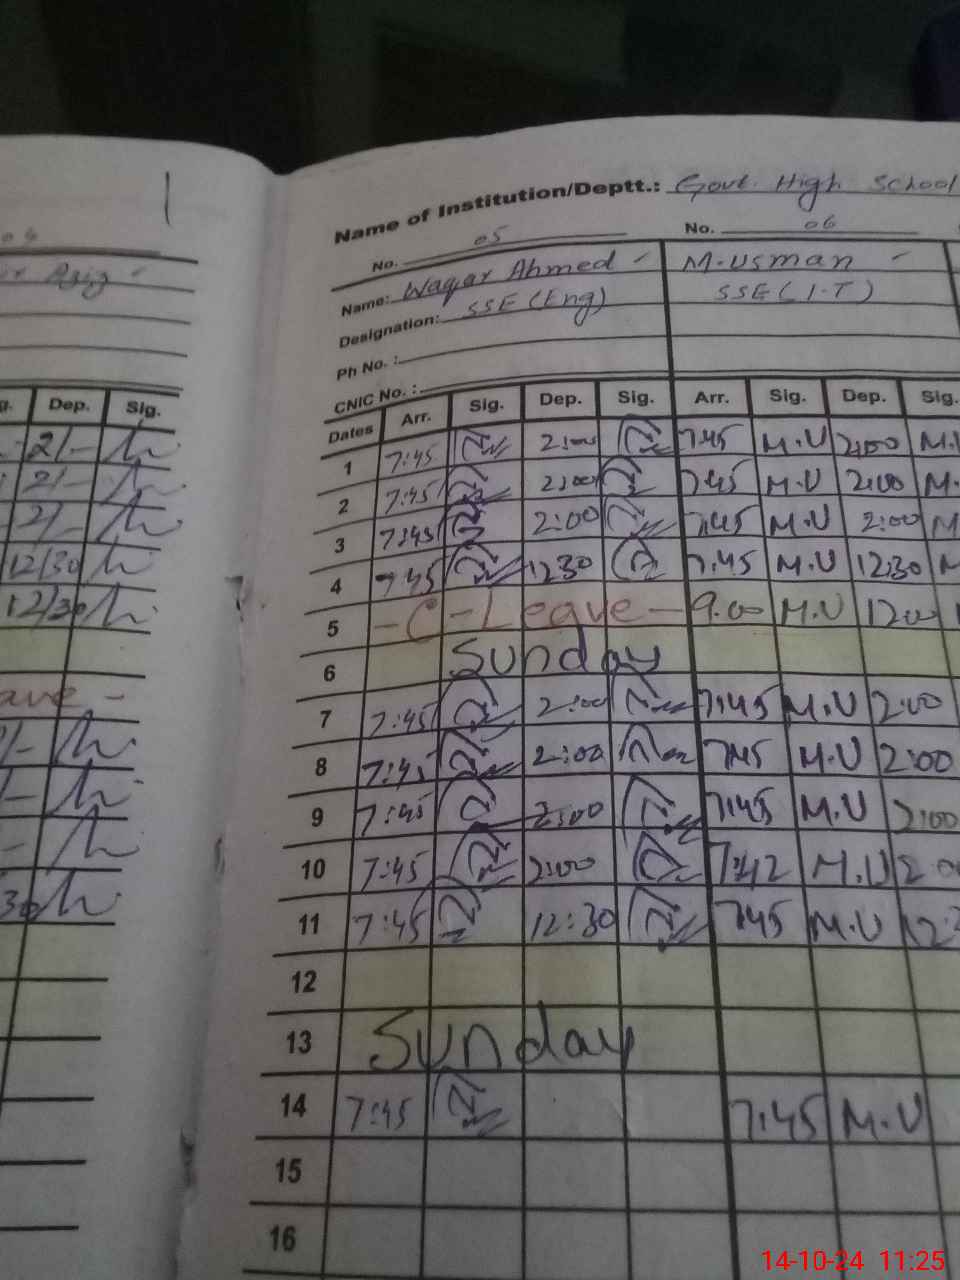 Name of Institution/Deptt.: Govt. High School
No. 05 No. 06
Name: Waqar Ahmed - M.Usman -
Designation: SSE (Eng) SSE (I.T)
Ph No. :
CNIC No. :
Dep. Sig.
Dates Arr. Sig. Dep. Sig. Arr. Sig. Dep. Sig.
2/-
2/-
2/-
12/30
12/30
1 7:45 2:00 7:45 M.U 2:00 M.
2 7:45 2:00 7:45 M.U 2:00 M.
3 7:45 2:00 7:45 M.U 2:00 M
4 7:45 1230 7.45 M.U 12:30 M
5 - C - Leave - 9.00 M.U 1200
6 Sunday
7 7:45 2:00 7:45 M.U 2:00
8 7:45 2:00 7:45 M.U 2:00
9 7:45 2:00 7:45 M.U 2:00
10 7:45 2:00 7:42 M.U 2:00
11 7:45 12:30 7:45 M.U
12
13 Sunday
14 7:45 7:45 M.U
15
16
14-10-24 11:25